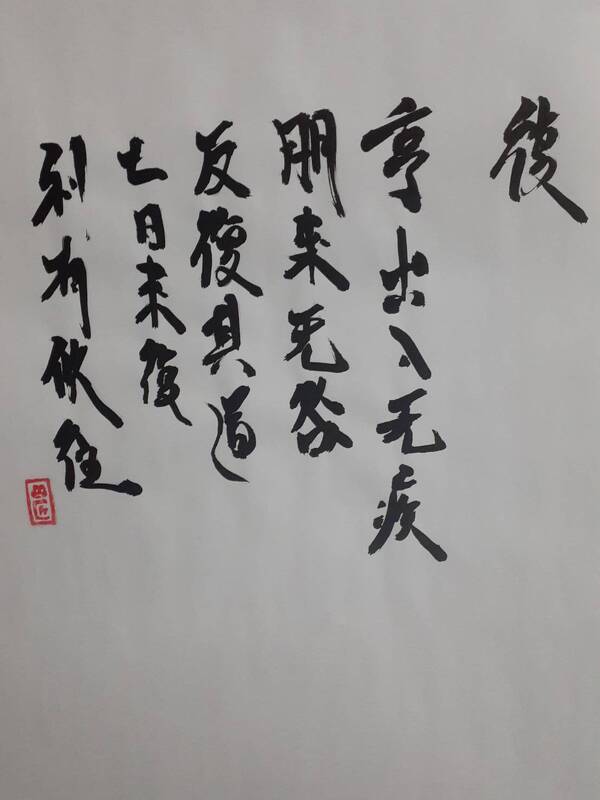 復
亨出入无疾
朋来无咎
反復其道
七日来復
利有攸往